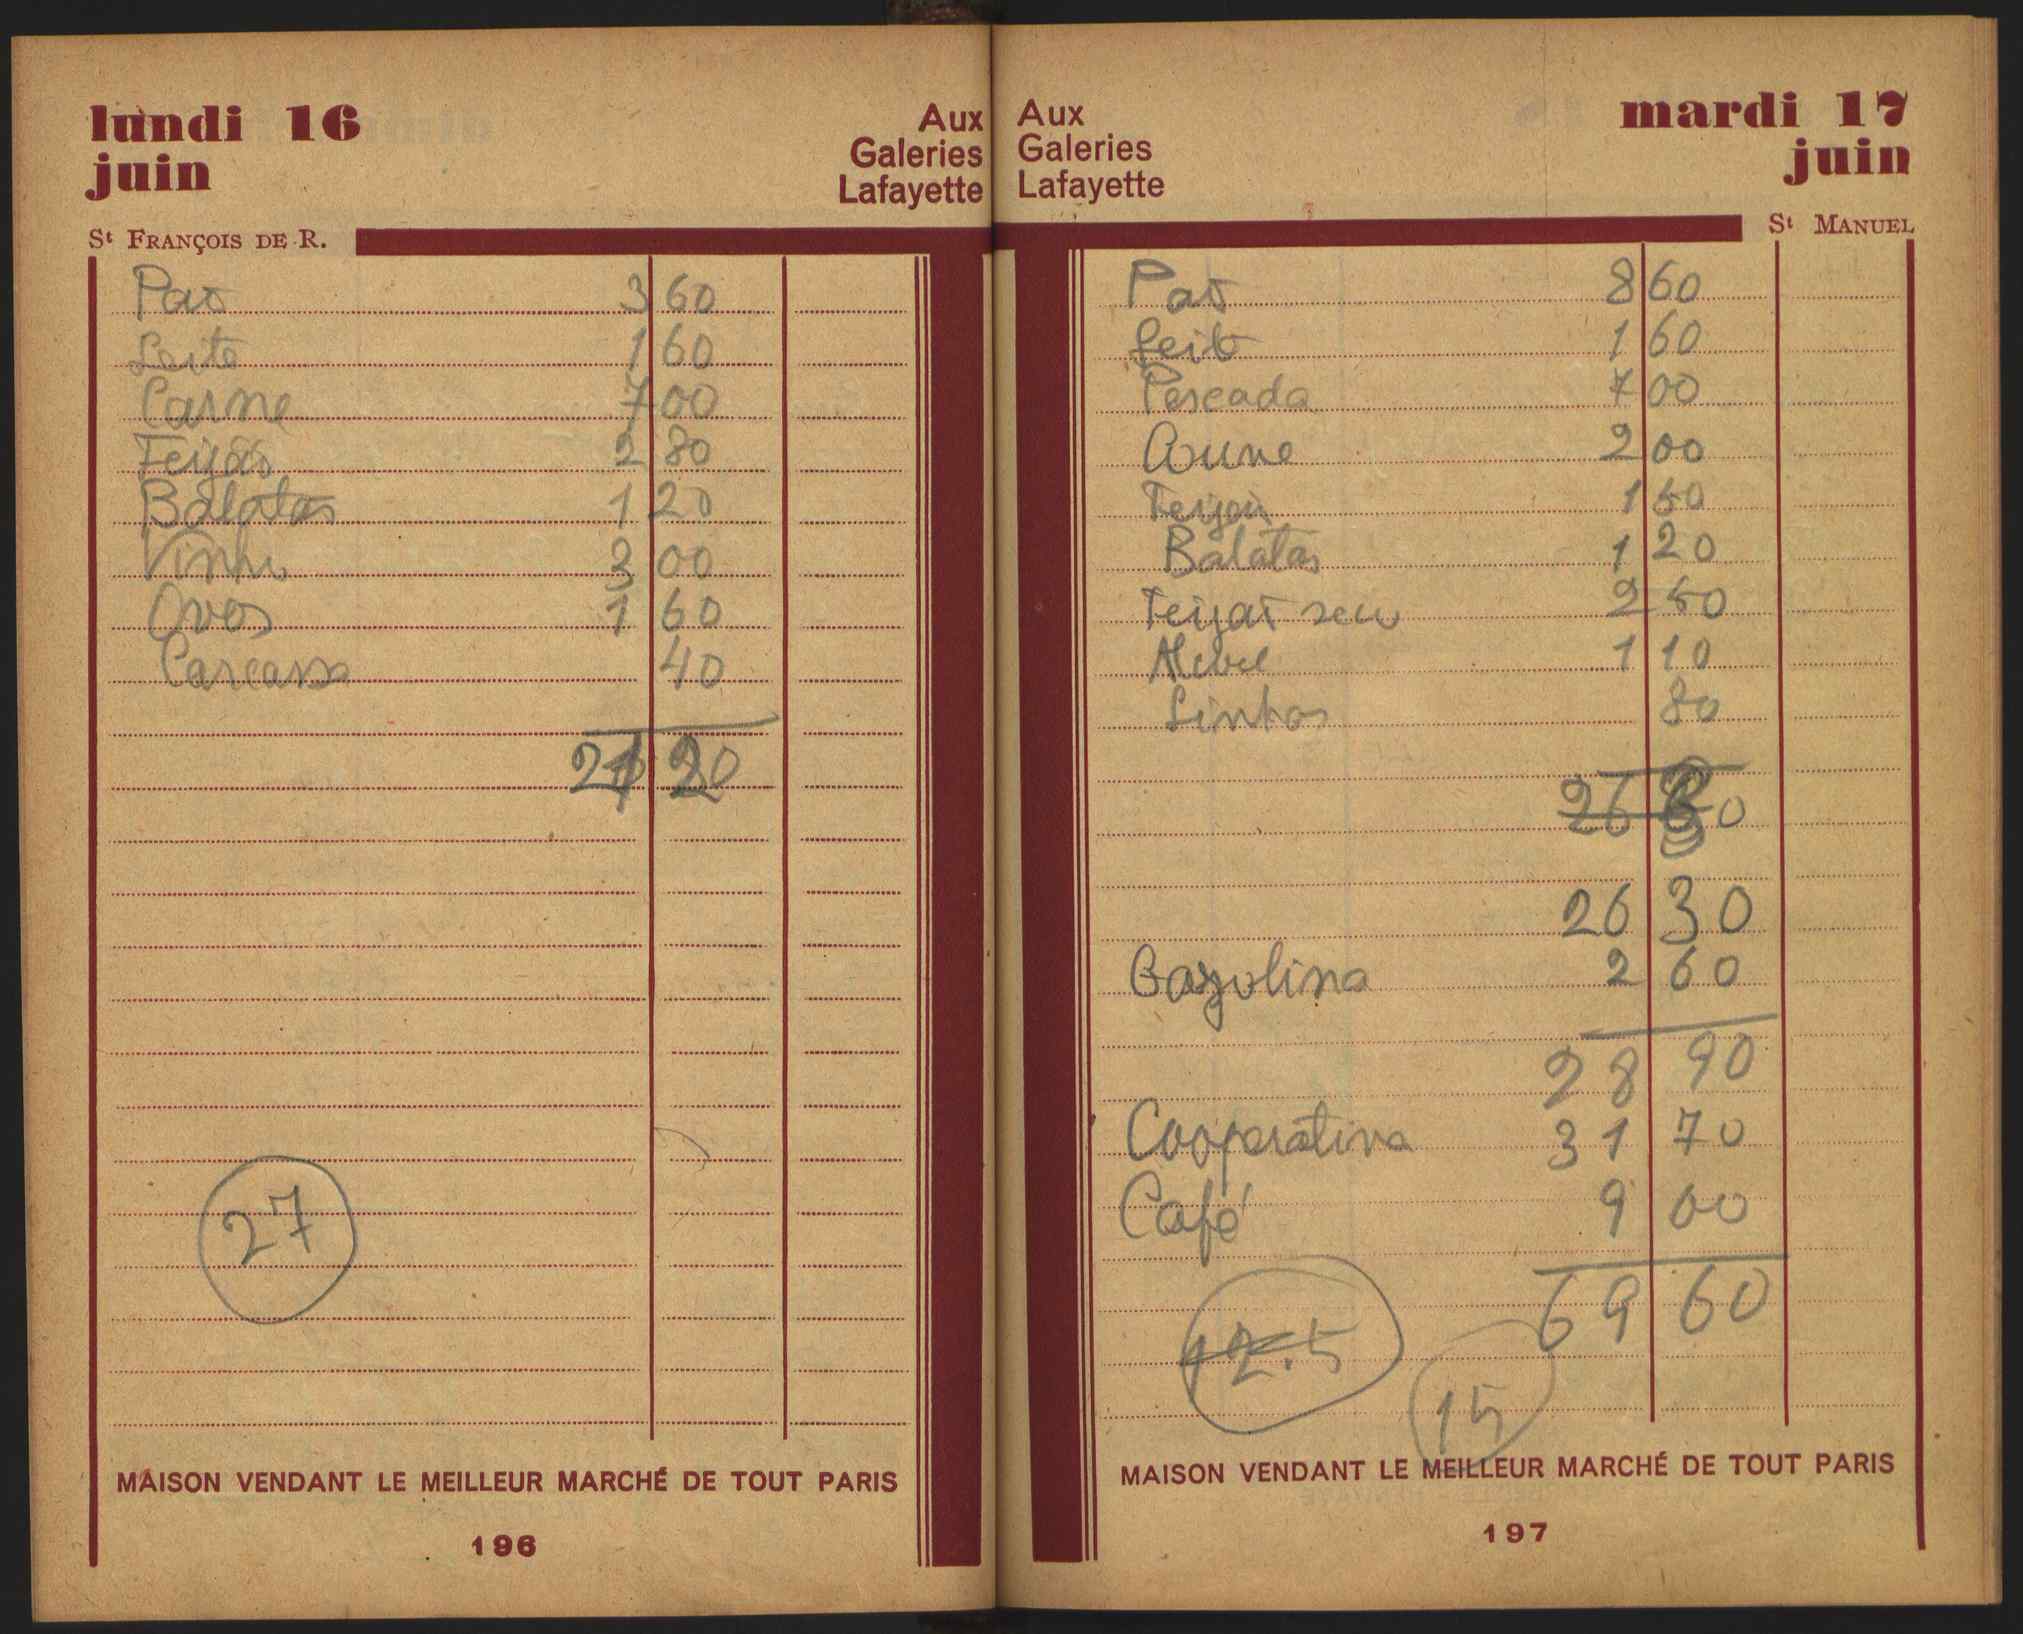 lundi 16
juin
Aux
Galeries
Lafayette
St FRANÇOIS DE R.
Pão 3 60
Leite 1 60
Carne 7 00
Feijão 2 80
Batatas 1 20
Vinho 3 00
Ovos 1 60
Carcassa 40
21 20
27
MAISON VENDANT LE MEILLEUR MARCHÉ DE TOUT PARIS
196
Aux
Galeries
Lafayette
mardi 17
juin
St MANUEL
Pão 8 60
Leite 1 60
Pescada 7 00
Couve 2 00
Feijão 1 50
Batatas 1 20
Feijão seco 2 50
1 10
Linhas 80
26 30
26 30
Gazolina 2 60
28 90
Cooperativa 31 70
Café 9 00
69 60
12.5
15
MAISON VENDANT LE MEILLEUR MARCHÉ DE TOUT PARIS
197